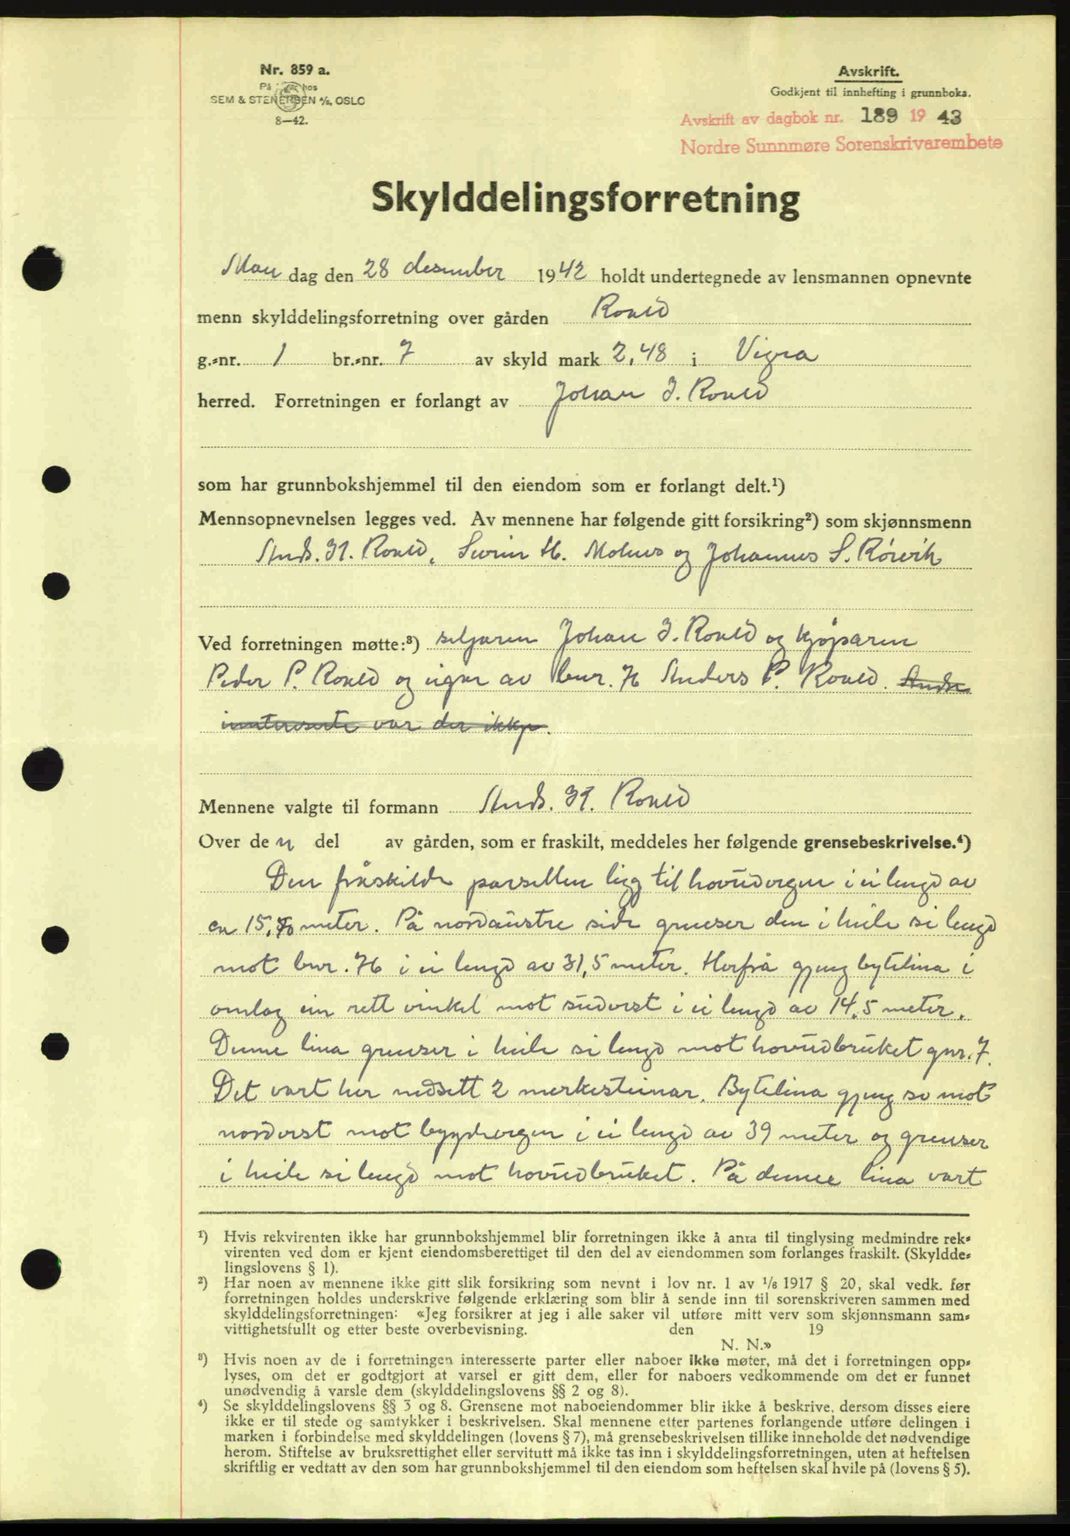 Nr. 859 a.
På hos
SEM & STENERSEN A/S, OSLO
8—42.
Avskrift.
Godkjent til innhefting i grunnboka.
Avskrift av dagbok nr. 189 19 43
Nordre Sunnmøre Sorenskrivarembete
Skylddelingsforretning
Man dag den 28 desember 1942 holdt undertegnede av lensmannen opnevnte
menn skylddelingsforretning over gården Roald
g.-nr. 1 br.-nr. 7 av skyld mark 2,48 i Vigra
herred. Forretningen er forlangt av Johan J. Roald
som har grunnbokshjemmel til den eiendom som er forlangt delt.¹)
Mennsopnevnelsen legges ved. Av mennene har følgende gitt forsikring²) som skjønnsmenn
Ands. K. Roald, Severin H. Molnes og Johannes S. Rörvik
Ved forretningen møtte:³) seljaren Johan J. Roald og kjøparen
Peder P. Roald og eigar av bnr. 76 Anders P. Roald. Andre
interesserte var der ikkje.
Mennene valgte til formann Ands. K. Roald
Over den del av gården, som er fraskilt, meddeles her følgende grensebeskrivelse.⁴)
Den fråskilde parsellen ligg til hovudvegen i ei lengd av
ca 15,70 meter. På nordaustre side grenser den i heile si lengd
mot bnr. 76 i ei lengd av 31,5 meter. Herfrå gjeng bytelina i
omlag ein rett vinkel mot südvest i ei lengd av 14,5 meter.
Denne lina grenser i heile si lengd mot hovudbruket gnr. 7.
Det vart her nedsett 2 merkesteinar. Bytelina gjeng so mot
nordvest mot bygdevegen i ei lengd av 39 meter og grenser
i heile si lengd mot hovudbruket. På denne lina vart
¹) Hvis rekvirenten ikke har grunnbokshjemmel blir forretningen ikke å anta til tinglysing medmindre rek-
virenten ved dom er kjent eiendomsberettiget til den del av eiendommen som forlanges fraskilt. (Skyldde-
lingslovens § 1).
²) Har noen av mennene ikke gitt slik forsikring som nevnt i lov nr. 1 av 1/6 1917 § 20, skal vedk. før
forretningen holdes underskrive følgende erklæring som blir å sende inn til sorenskriveren sammen med
skylddelingsforretningen: «Jeg forsikrer at jeg i alle saker vil utføre mitt verv som skjønnsmann sam-
vittighetsfullt og etter beste overbevisning. den 19
N. N.»
³) Hvis noen av de i forretningen interesserte parter eller naboer ikke møter, må det i forretningen opp-
lyses, om det er godtgjort at varsel er gitt dem, eller for naboers vedkommende om det er funnet
unødvendig å varsle dem (skylddelingslovens §§ 2 og 8).
⁴) Se skylddelingslovens §§ 3 og 8. Grensene mot naboeiendommer blir ikke å beskrive, dersom disses eiere
ikke er til stede og samtykker i beskrivelsen. Skal mennene etter partenes forlangende utføre delingen i
marken i forbindelse med skylddelingen (lovens § 7), må grensebeskrivelsen tillike inneholde det nødvendige
herom. Stiftelse av bruksrettighet eller servitutt må ikke tas inn i skylddelingsforretningen, uten at heftelsen
skriftlig er vedtatt av den som har grunnbokshjemmel til den eiendom som heftelsen skal hvile på (lovens § 5).